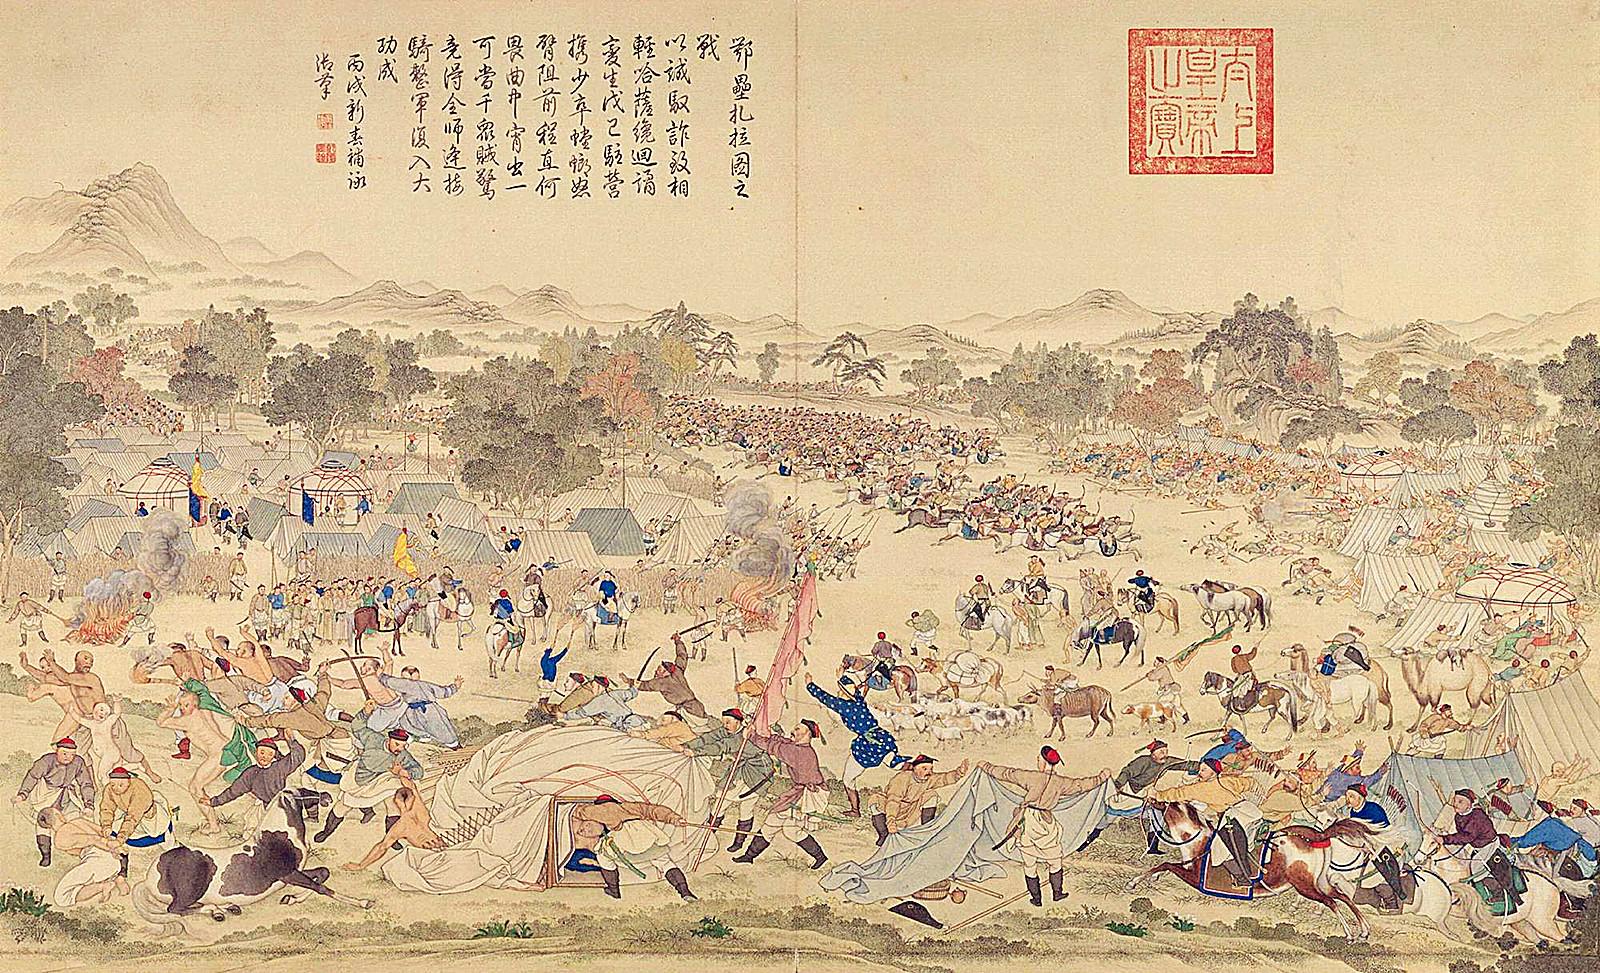 鄂壘扎拉圖之
戰
以誠馭詐致相
輕哈薩纔迴
變生戊己駐營
携少卒螳螂怒
臂阻前程直何
畏曲中宵出一
可當千眾賊驚
竟得全師逢接
騎整軍復入大
功成
丙戌新春補詠
御筆
太上
皇帝
之寶